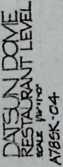 DATSUN DOME
RESTAURANT LEVEL
SCALE 1/8"=1'0"
A785K-04